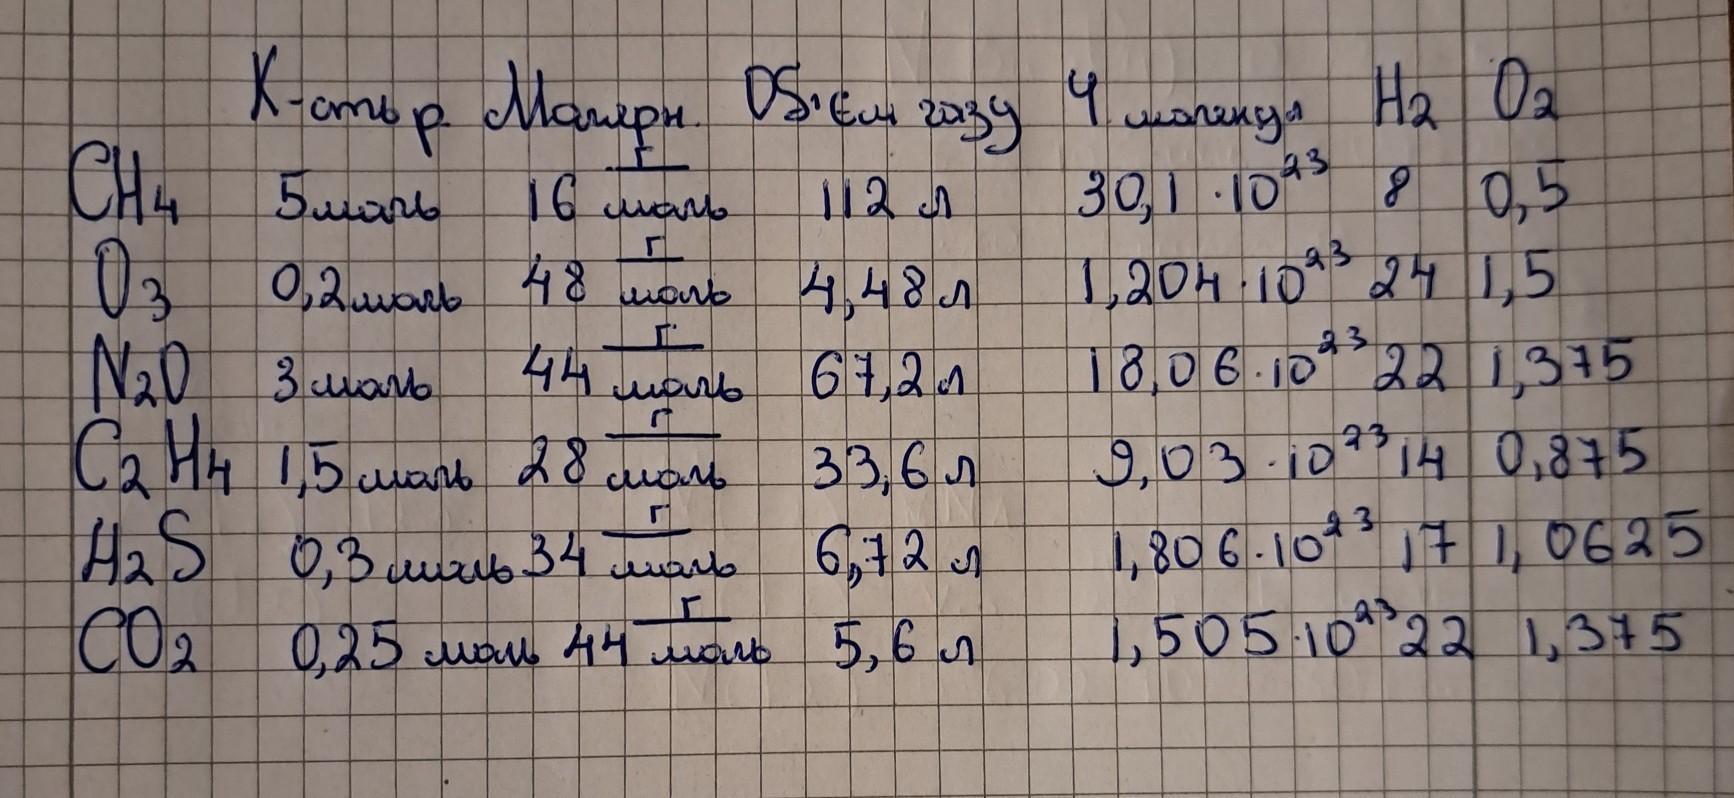 К-сть р. Мол.рн. Об'єм газу Ч молекул H2 O2
CH4 5 моль 16 г/моль 112 л 30,1 · 10^23 8 0,5
O3 0,2 моль 48 г/моль 4,48 л 1,204 · 10^23 24 1,5
N2O 3 моль 44 г/моль 67,2 л 18,06 · 10^23 22 1,375
C2H4 1,5 моль 28 г/моль 33,6 л 9,03 · 10^23 14 0,875
H2S 0,3 моль 34 г/моль 6,72 л 1,806 · 10^23 17 1,0625
CO2 0,25 моль 44 г/моль 5,6 л 1,505 · 10^23 22 1,375